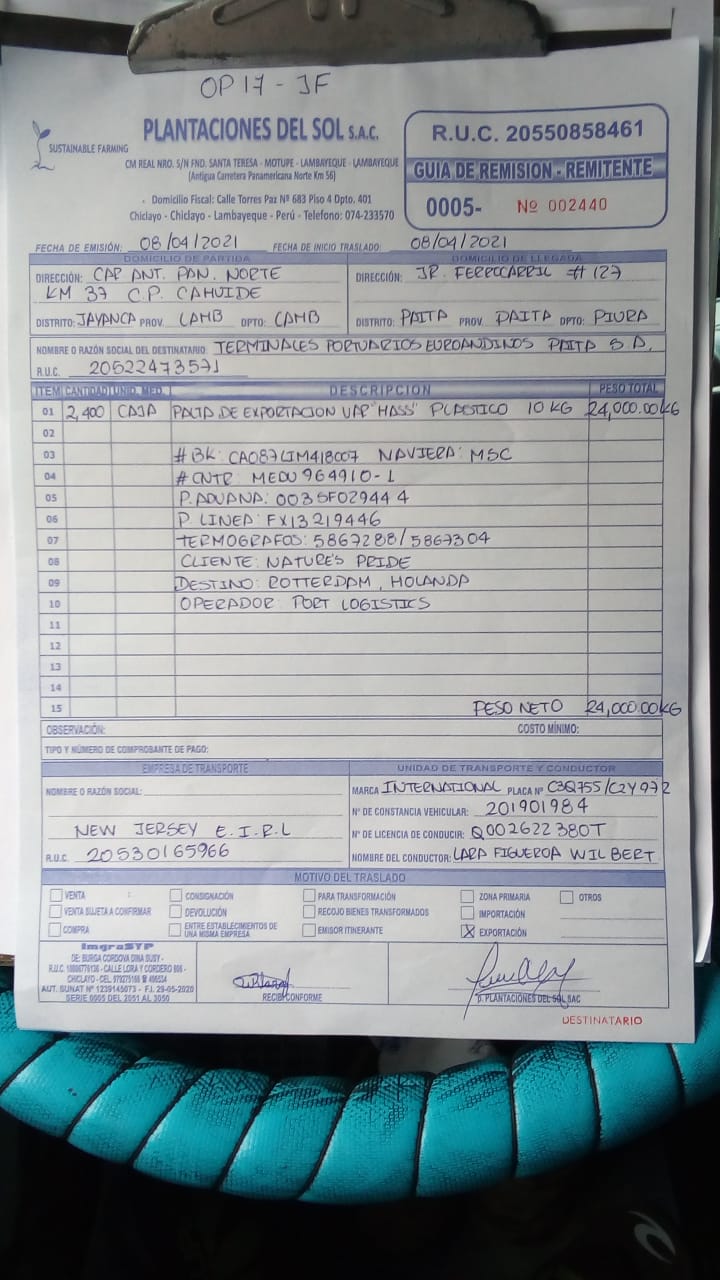 OP 17 - JF
SUSTAINABLE FARMING
PLANTACIONES DEL SOL S.A.C.
CM REAL NRO. S/N FND. SANTA TERESA - MOTUPE - LAMBAYEQUE - LAMBAYEQUE
(Antigua Carretera Panamericana Norte Km 56)
Domicilio Fiscal: Calle Torres Paz Nº 683 Piso 4 Dpto. 401
Chiclayo - Chiclayo - Lambayeque - Perú - Telefono: 074-233570
R.U.C. 20550858461
GUIA DE REMISION - REMITENTE
0005- Nº 002440
FECHA DE EMISIÓN: 08/04/2021 FECHA DE INICIO TRASLADO: 08/04/2021
DOMICILIO DE PARTIDA
DIRECCIÓN: CAR ANT. PAN. NORTE
KM 37 C.P. CAHUIDE
DISTRITO: JAYANCA PROV. LAMB DPTO: LAMB
DOMICILIO DE LLEGADA
DIRECCIÓN: JR. FERROCARRIL # 127
DISTRITO: PAITA PROV. PAITA DPTO: PIURA
NOMBRE O RAZÓN SOCIAL DEL DESTINATARIO: TERMINALES PORTUARIOS EUROANDINOS PAITA S.A.
R.U.C. 20522473571
ITEM CANTIDAD UNID. MED. DESCRIPCION PESO TOTAL
01 2,400 CAJA PALTA DE EXPORTACION VAR "HASS" PLASTICO 10 KG 24,000.00KG
02
03 # BK: CA087LIM418007 NAVIERA: MSC
04 # CNTR: MEDU 964910-1
05 P. ADUANA: 0035F029444
06 P. LINEA: FX13219446
07 TERMOGRAFOS: 5867288/5867304
08 CLIENTE: NATURE'S PRIDE
09 DESTINO: ROTTERDAM, HOLANDA
10 OPERADOR: PORT LOGISTICS
11
12
13
14
15 PESO NETO 24,000.00KG
OBSERVACIÓN: COSTO MÍNIMO:
TIPO Y NÚMERO DE COMPROBANTE DE PAGO:
EMPRESA DE TRANSPORTE
NOMBRE O RAZÓN SOCIAL:
NEW JERSEY E.I.R.L
R.U.C. 20530165966
UNIDAD DE TRANSPORTE Y CONDUCTOR
MARCA INTERNATIONAL PLACA Nº C3Q755/C2Y972
Nº DE CONSTANCIA VEHICULAR: 201901984
Nº DE LICENCIA DE CONDUCIR: Q002622380T
NOMBRE DEL CONDUCTOR: LARA FIGUEROA WILBERT
MOTIVO DEL TRASLADO
VENTA CONSIGNACIÓN PARA TRANSFORMACIÓN ZONA PRIMARIA OTROS
VENTA SUJETA A CONFIRMAR DEVOLUCIÓN RECOJO BIENES TRANSFORMADOS IMPORTACIÓN
COMPRA ENTRE ESTABLECIMIENTOS DE UNA MISMA EMPRESA EMISOR ITINERANTE X EXPORTACIÓN
ImgraSYP
DE: BURGA CORDOVA DINA SUSY -
CALLE LORA Y CORDERO
CHICLAYO - CEL.
AUT. SUNAT Nº 1239145073 - F.I. 29-05-2020
SERIE 0005 DEL 2051 AL 3050
RECIBI CONFORME
P. PLANTACIONES DEL SOL SAC
DESTINATARIO